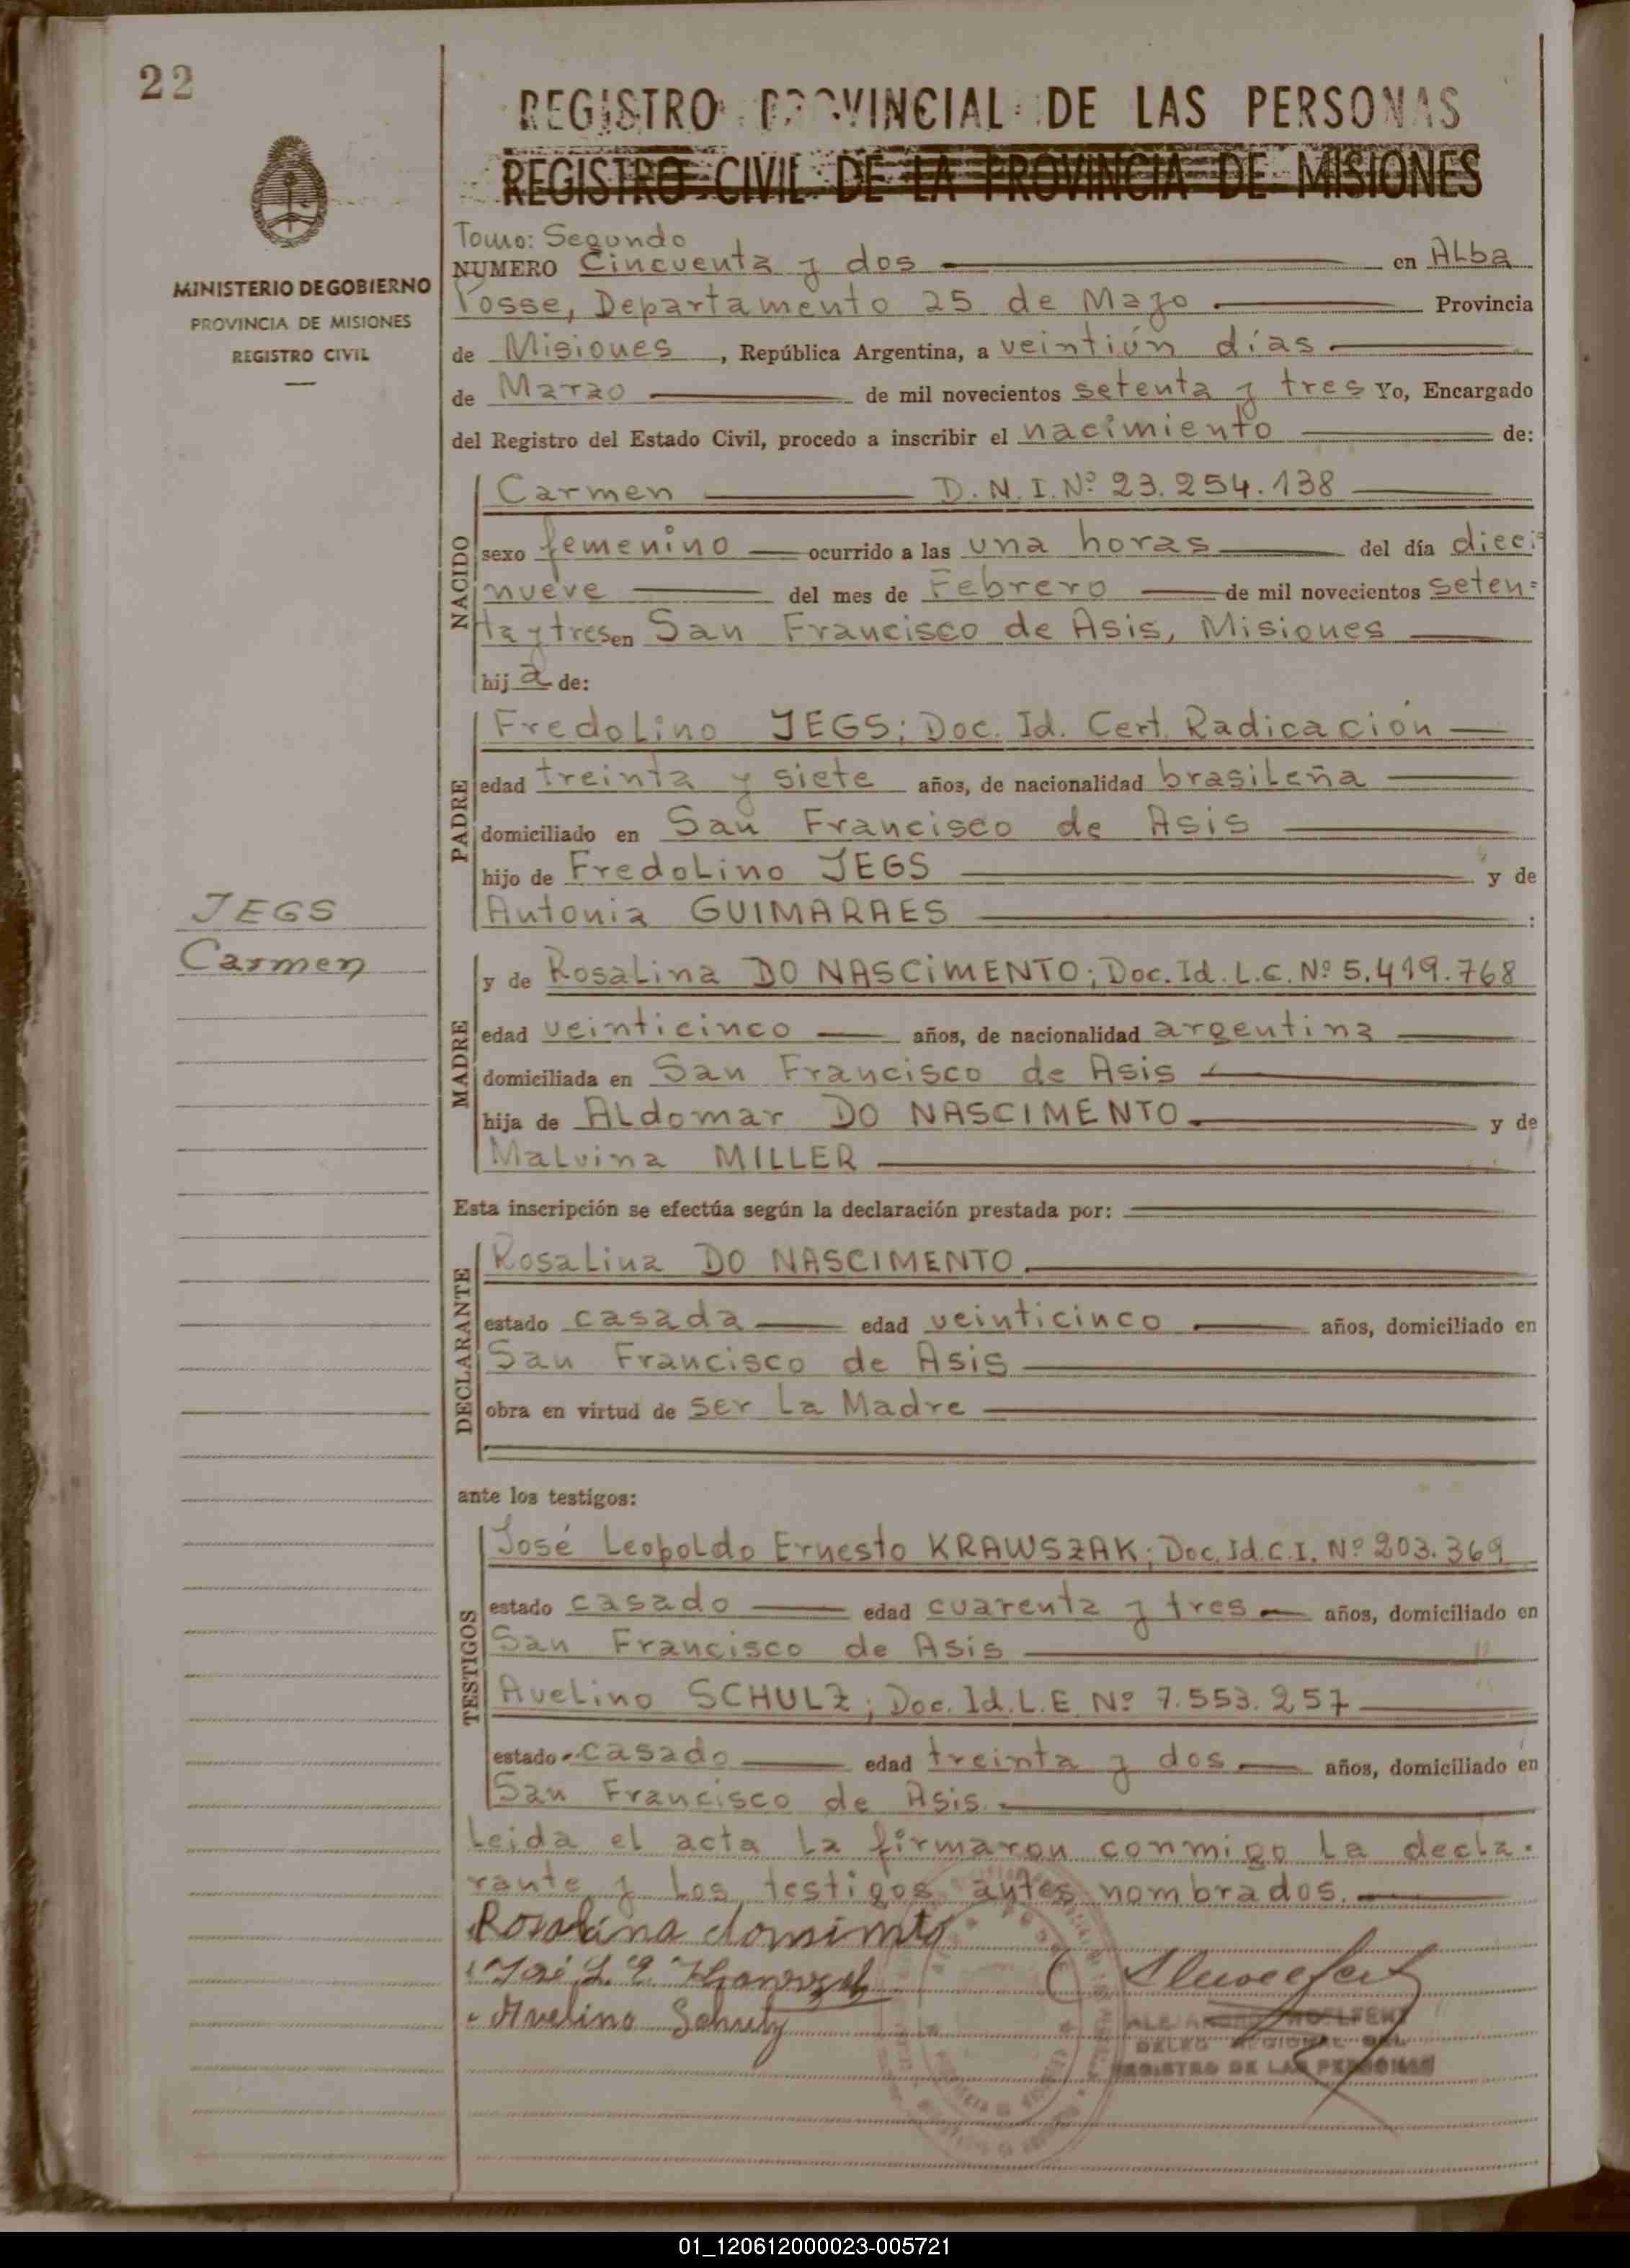 22
REGISTRO PROVINCIAL DE LAS PERSONAS
REGISTRO CIVIL DE LA PROVINCIA DE MISIONES
MINISTERIO DE GOBIERNO
PROVINCIA DE MISIONES
REGISTRO CIVIL
Tomo: Segundo
NUMERO Cincuenta y dos en ALba
Posse, Departamento 25 de Mayo Provincia
de Misiones, República Argentina, a veintiún días
de Marzo de mil novecientos setenta y tres Yo, Encargado
del Registro del Estado Civil, procedo a inscribir el nacimiento de:
NACIDO
Carmen D.N.I.Nº 23.254.138
sexo femenino ocurrido a las una horas del día dieci=
nueve del mes de Febrero de mil novecientos seten=
ta y tres en San Francisco de Asis, Misiones
hija de:
PADRE
Fredolino JEGS; Doc. Id. Cert. Radicación
edad treinta y siete años, de nacionalidad brasileña
domiciliado en San Francisco de Asis
hijo de Fredolino JEGS y de
Antonia GUIMARAES :
JEGS
Carmen
MADRE
y de Rosalina DO NASCIMENTO; Doc. Id. L.C. Nº 5.419.768
edad veinticinco años, de nacionalidad argentina
domiciliada en San Francisco de Asis
hija de Aldomar DO NASCIMENTO y de
Malvina MILLER
Esta inscripción se efectúa según la declaración prestada por:
DECLARANTE
Rosalina DO NASCIMENTO
estado casada edad veinticinco años, domiciliado en
San Francisco de Asis
obra en virtud de ser la Madre
ante los testigos:
TESTIGOS
José Leopoldo Ernesto KRAWSZAK; Doc. Id. C.I. Nº 203.369
estado casado edad cuarenta y tres años, domiciliado en
San Francisco de Asis
Avelino SCHULZ; Doc. Id. L.E. Nº 7.553.257
estado casado edad treinta y dos años, domiciliado en
San Francisco de Asis.
Leida el acta la firmaron conmigo la decla-
rante y los testigos antes nombrados.
Rosalina
José L. E.
Avelino Schulz
DELEG REGIONAL DEL
REGISTRO DE LAS PERSONAS
01_120612000023-005721